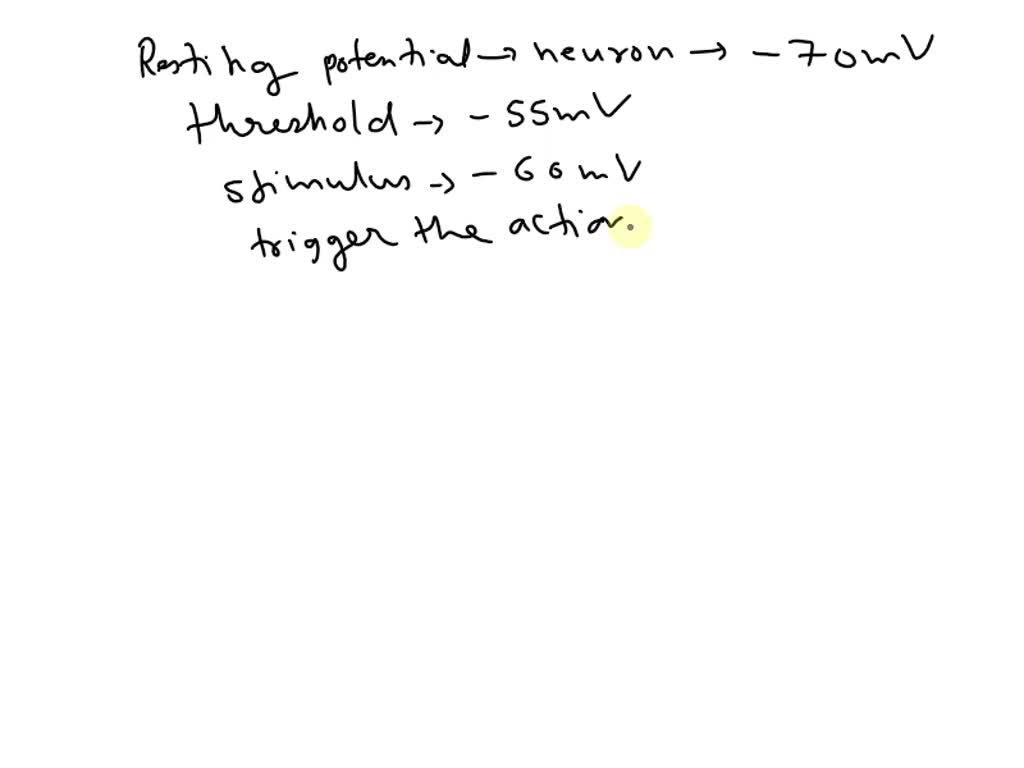 Resting potential → neuron → -70mV
threshold → -55mV
stimulus → -60mV
trigger the action